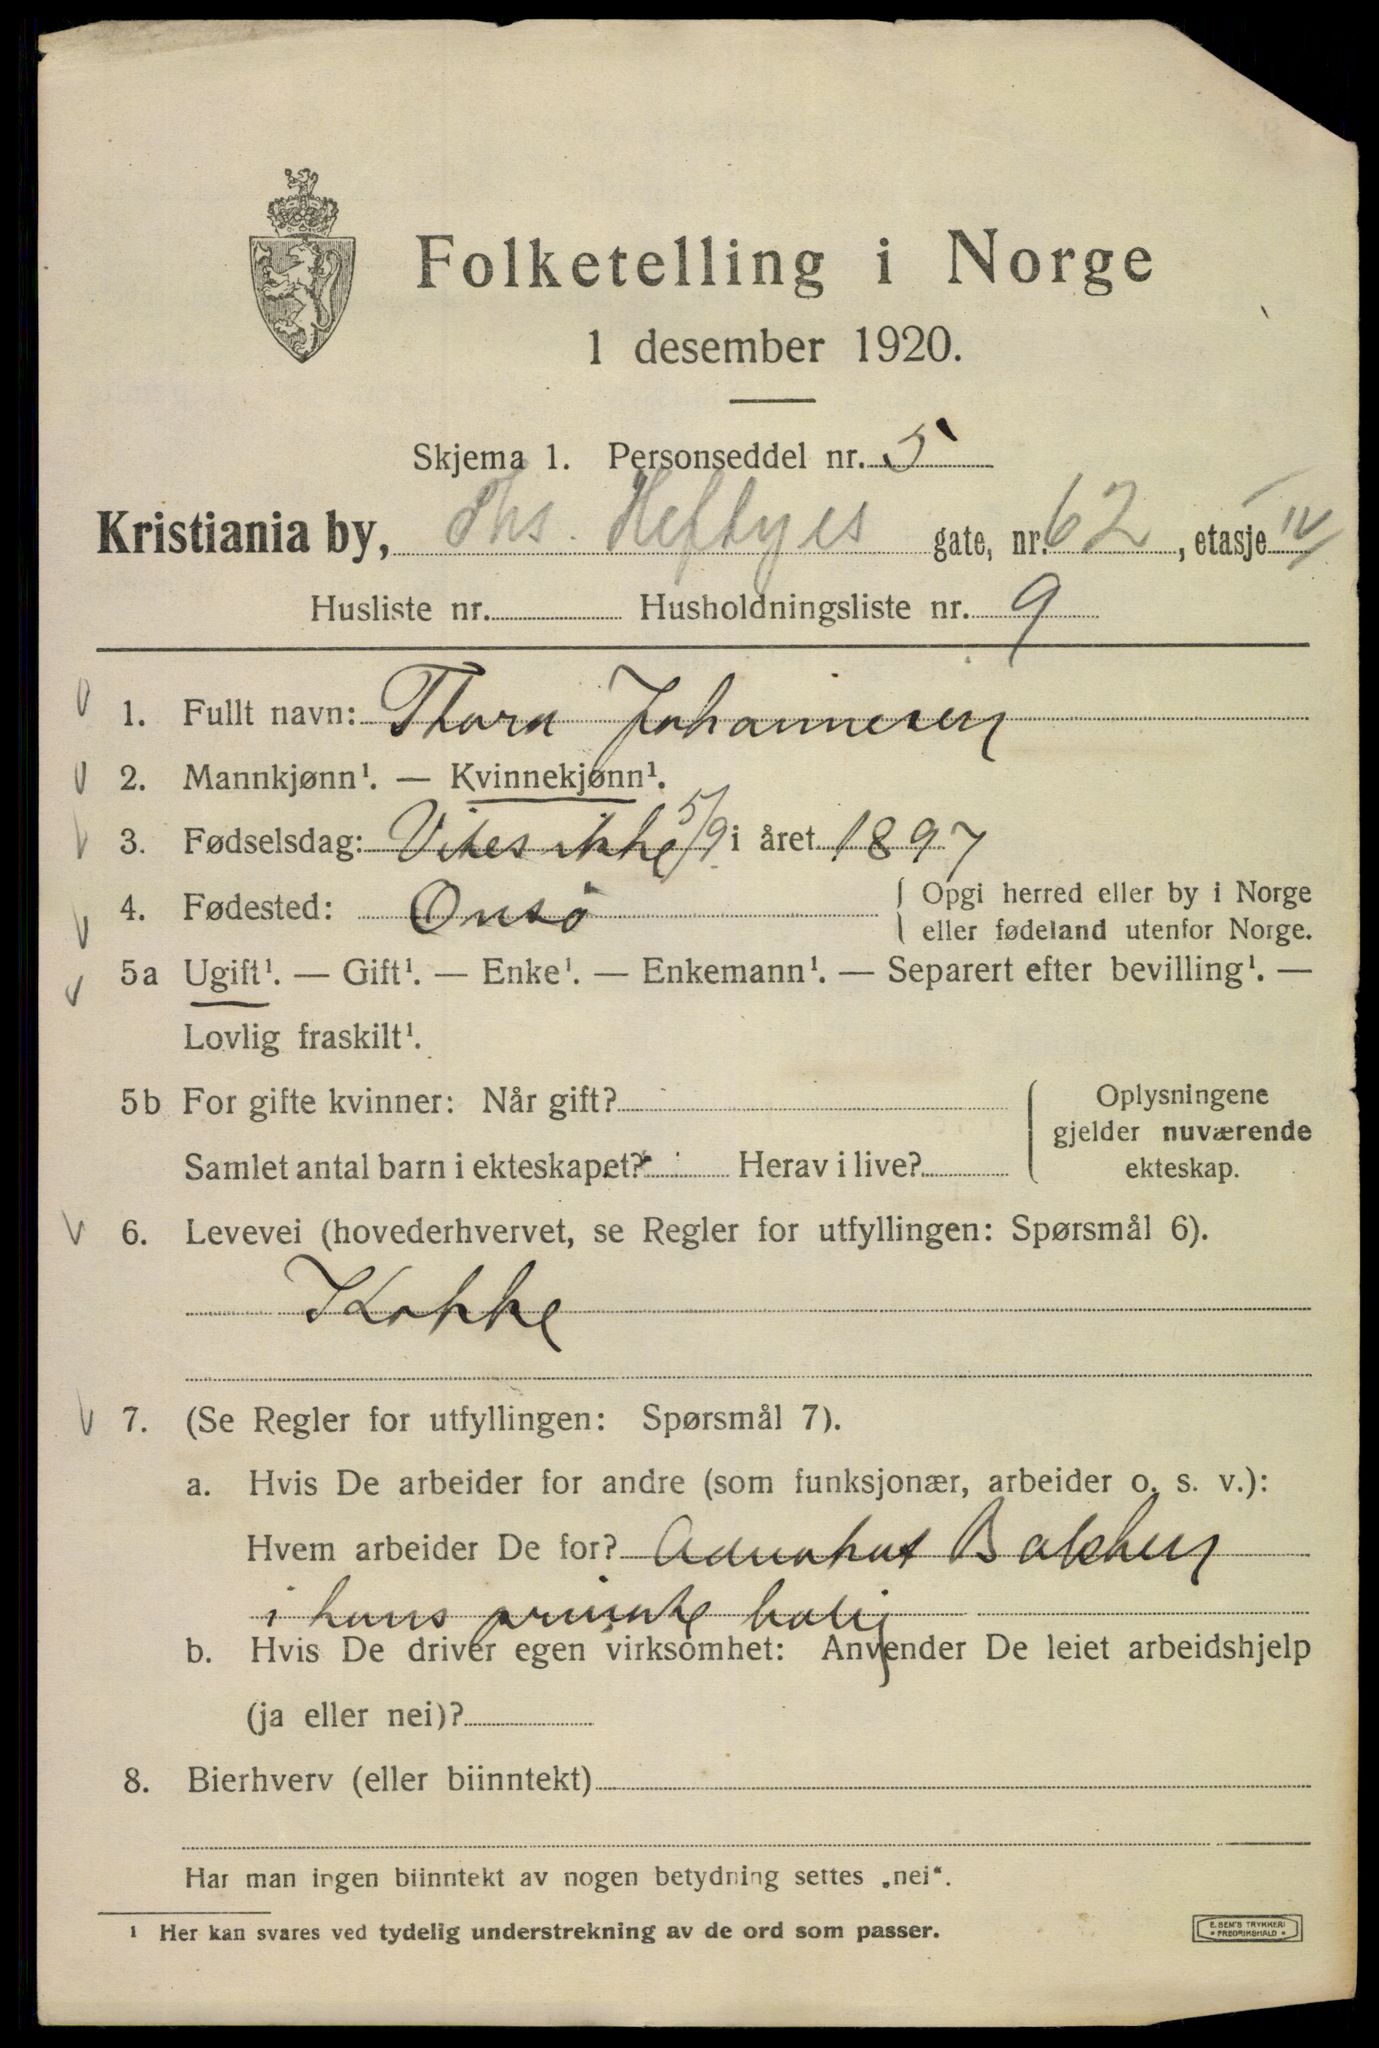 Folketelling i Norge
1 desember 1920.
Skjema 1. Personseddel nr. 5
Kristiania by, Ths. Heftyes gate, nr. 62, etasje IV
Husliste nr. Husholdningsliste nr. 9
1. Fullt navn: Thora Johannesen
2. Mannkjønn¹. — Kvinnekjønn¹.
3. Fødselsdag: Vites ikke 5/9 i året 1897
4. Fødested: Onsö { Opgi herred eller by i Norge
eller fødeland utenfor Norge.
5a Ugift¹. — Gift¹. — Enke¹. — Enkemann¹. — Separert efter bevilling¹. —
Lovlig fraskilt¹.
5b For gifte kvinner: Når gift?
Samlet antal barn i ekteskapet? Herav i live?
Oplysningene
gjelder nuværende
ekteskap.
6. Levevei (hovederhvervet, se Regler for utfyllingen: Spørsmål 6).
Kokke
7. (Se Regler for utfyllingen: Spørsmål 7).
a. Hvis De arbeider for andre (som funksjonær, arbeider o. s. v.):
Hvem arbeider De for? Advokat
i hans private bolig
b. Hvis De driver egen virksomhet: Anvender De leiet arbeidshjelp
(ja eller nei)?
8. Bierhverv (eller biinntekt)
Har man ingen biinntekt av nogen betydning settes „nei“.
¹ Her kan svares ved tydelig understrekning av de ord som passer.
E. SEM'S TRYKKERI
• FREDRIKSHALD •